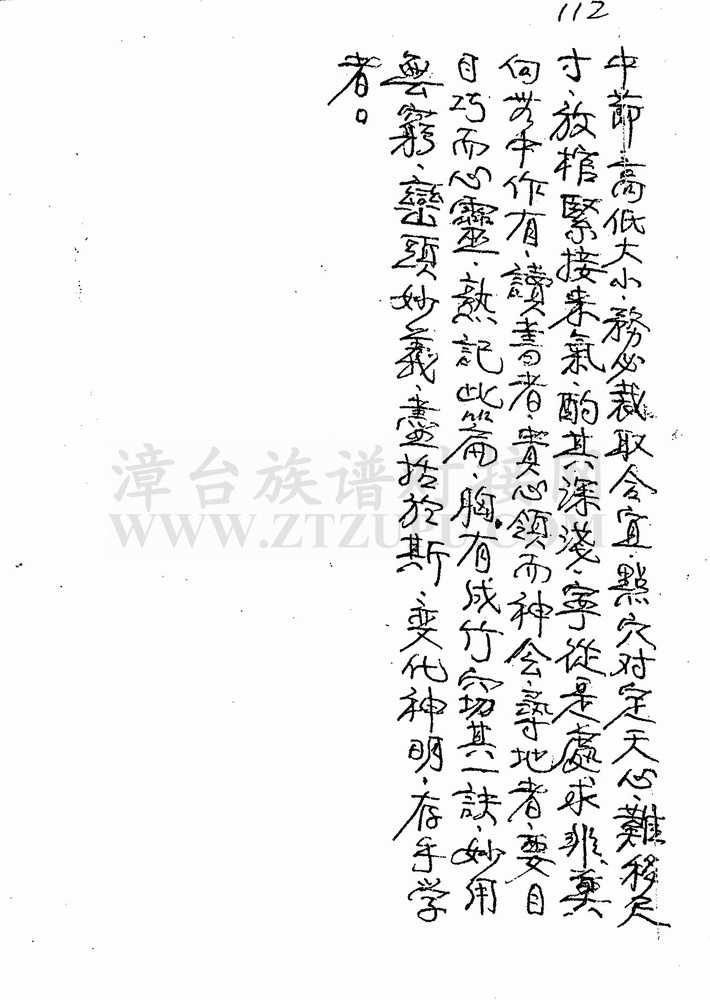 112
中節、高低大小、務必裁取合宜、點穴对定天心、難移尺
寸、放棺緊接来氣、酌其深淺、寧從是處求非、莫
向無中作有、讀書者、貴心領而神会、尋地者、要目
目巧而心靈、熟記此篇、胸有成竹、窃其一訣、妙用
無窮、巒頭妙義、盡括於斯、变化神明、存乎学
者。
漳台族谱对接网
WWW.ZTZUPU.COM